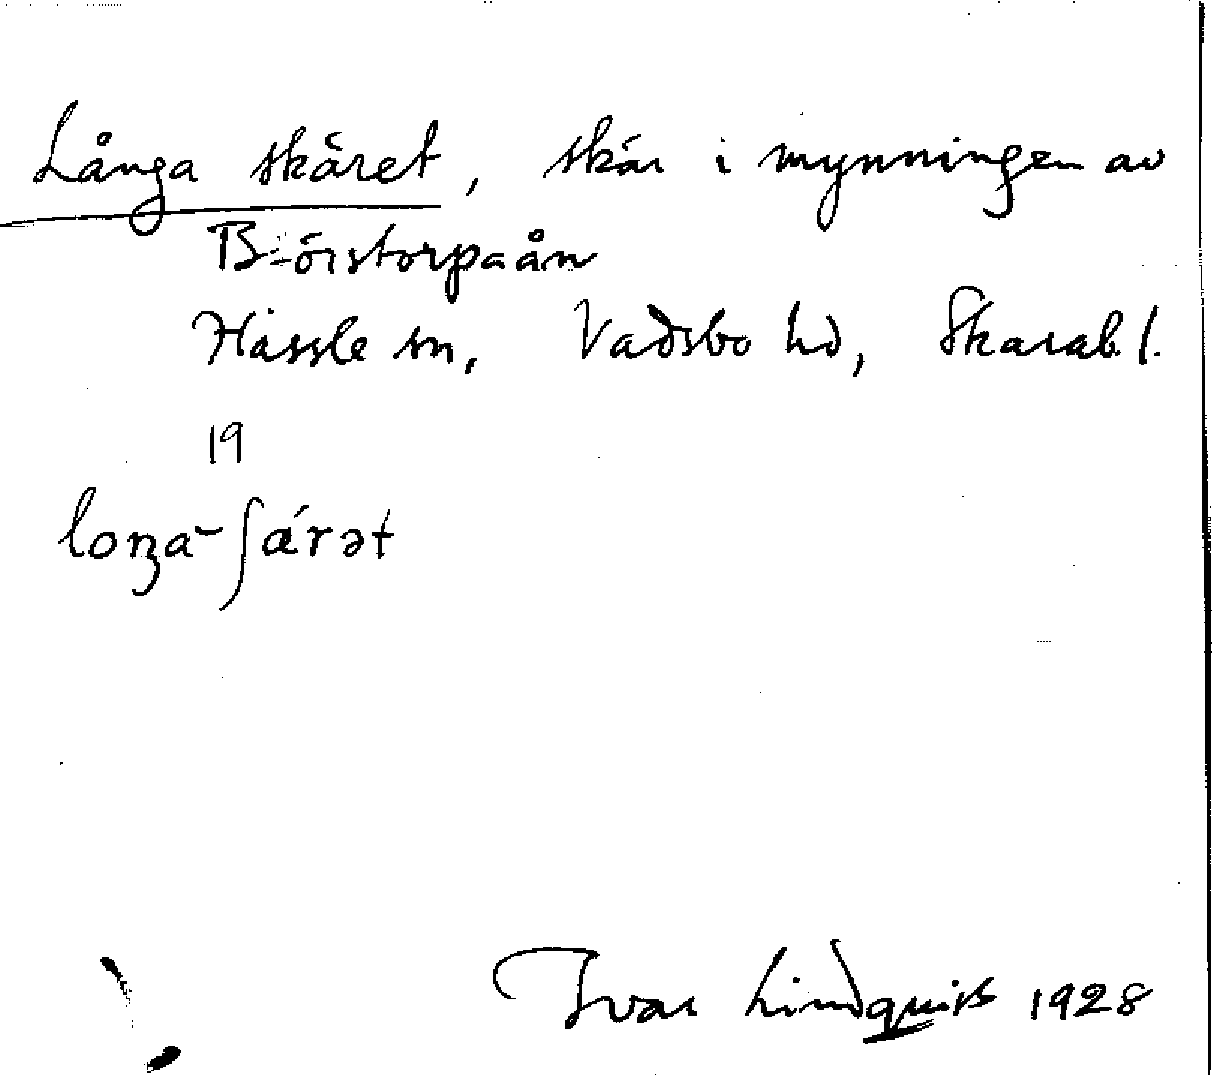 Långa skäret, skär i mynningen av
Börstorpaån
Hassle sn, Vadsbo hd, Skarab. l.
19
loŋa-ʃä́rət
Ivar Lindquist 1928